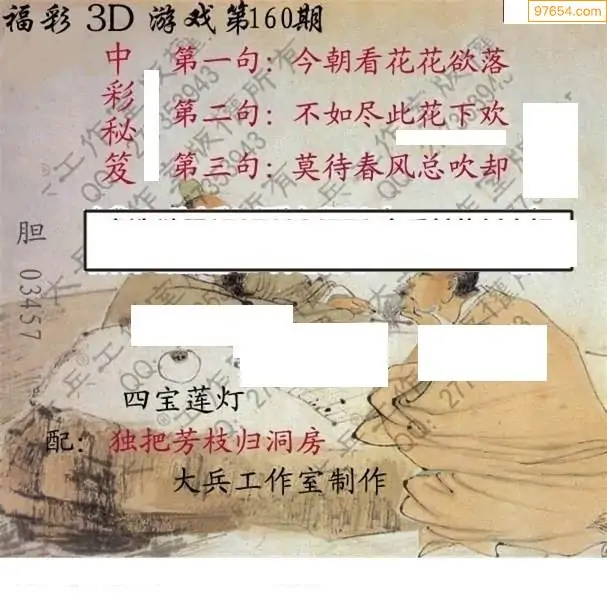 97654.com
福彩 3D 游戏第160期
中彩秘笈
第一句：今朝看花花欲落
第二句：不如尽此花下欢
第三句：莫待春风总吹却
胆 03457
四宝莲灯
配：独把芳枝归洞房
大兵工作室制作